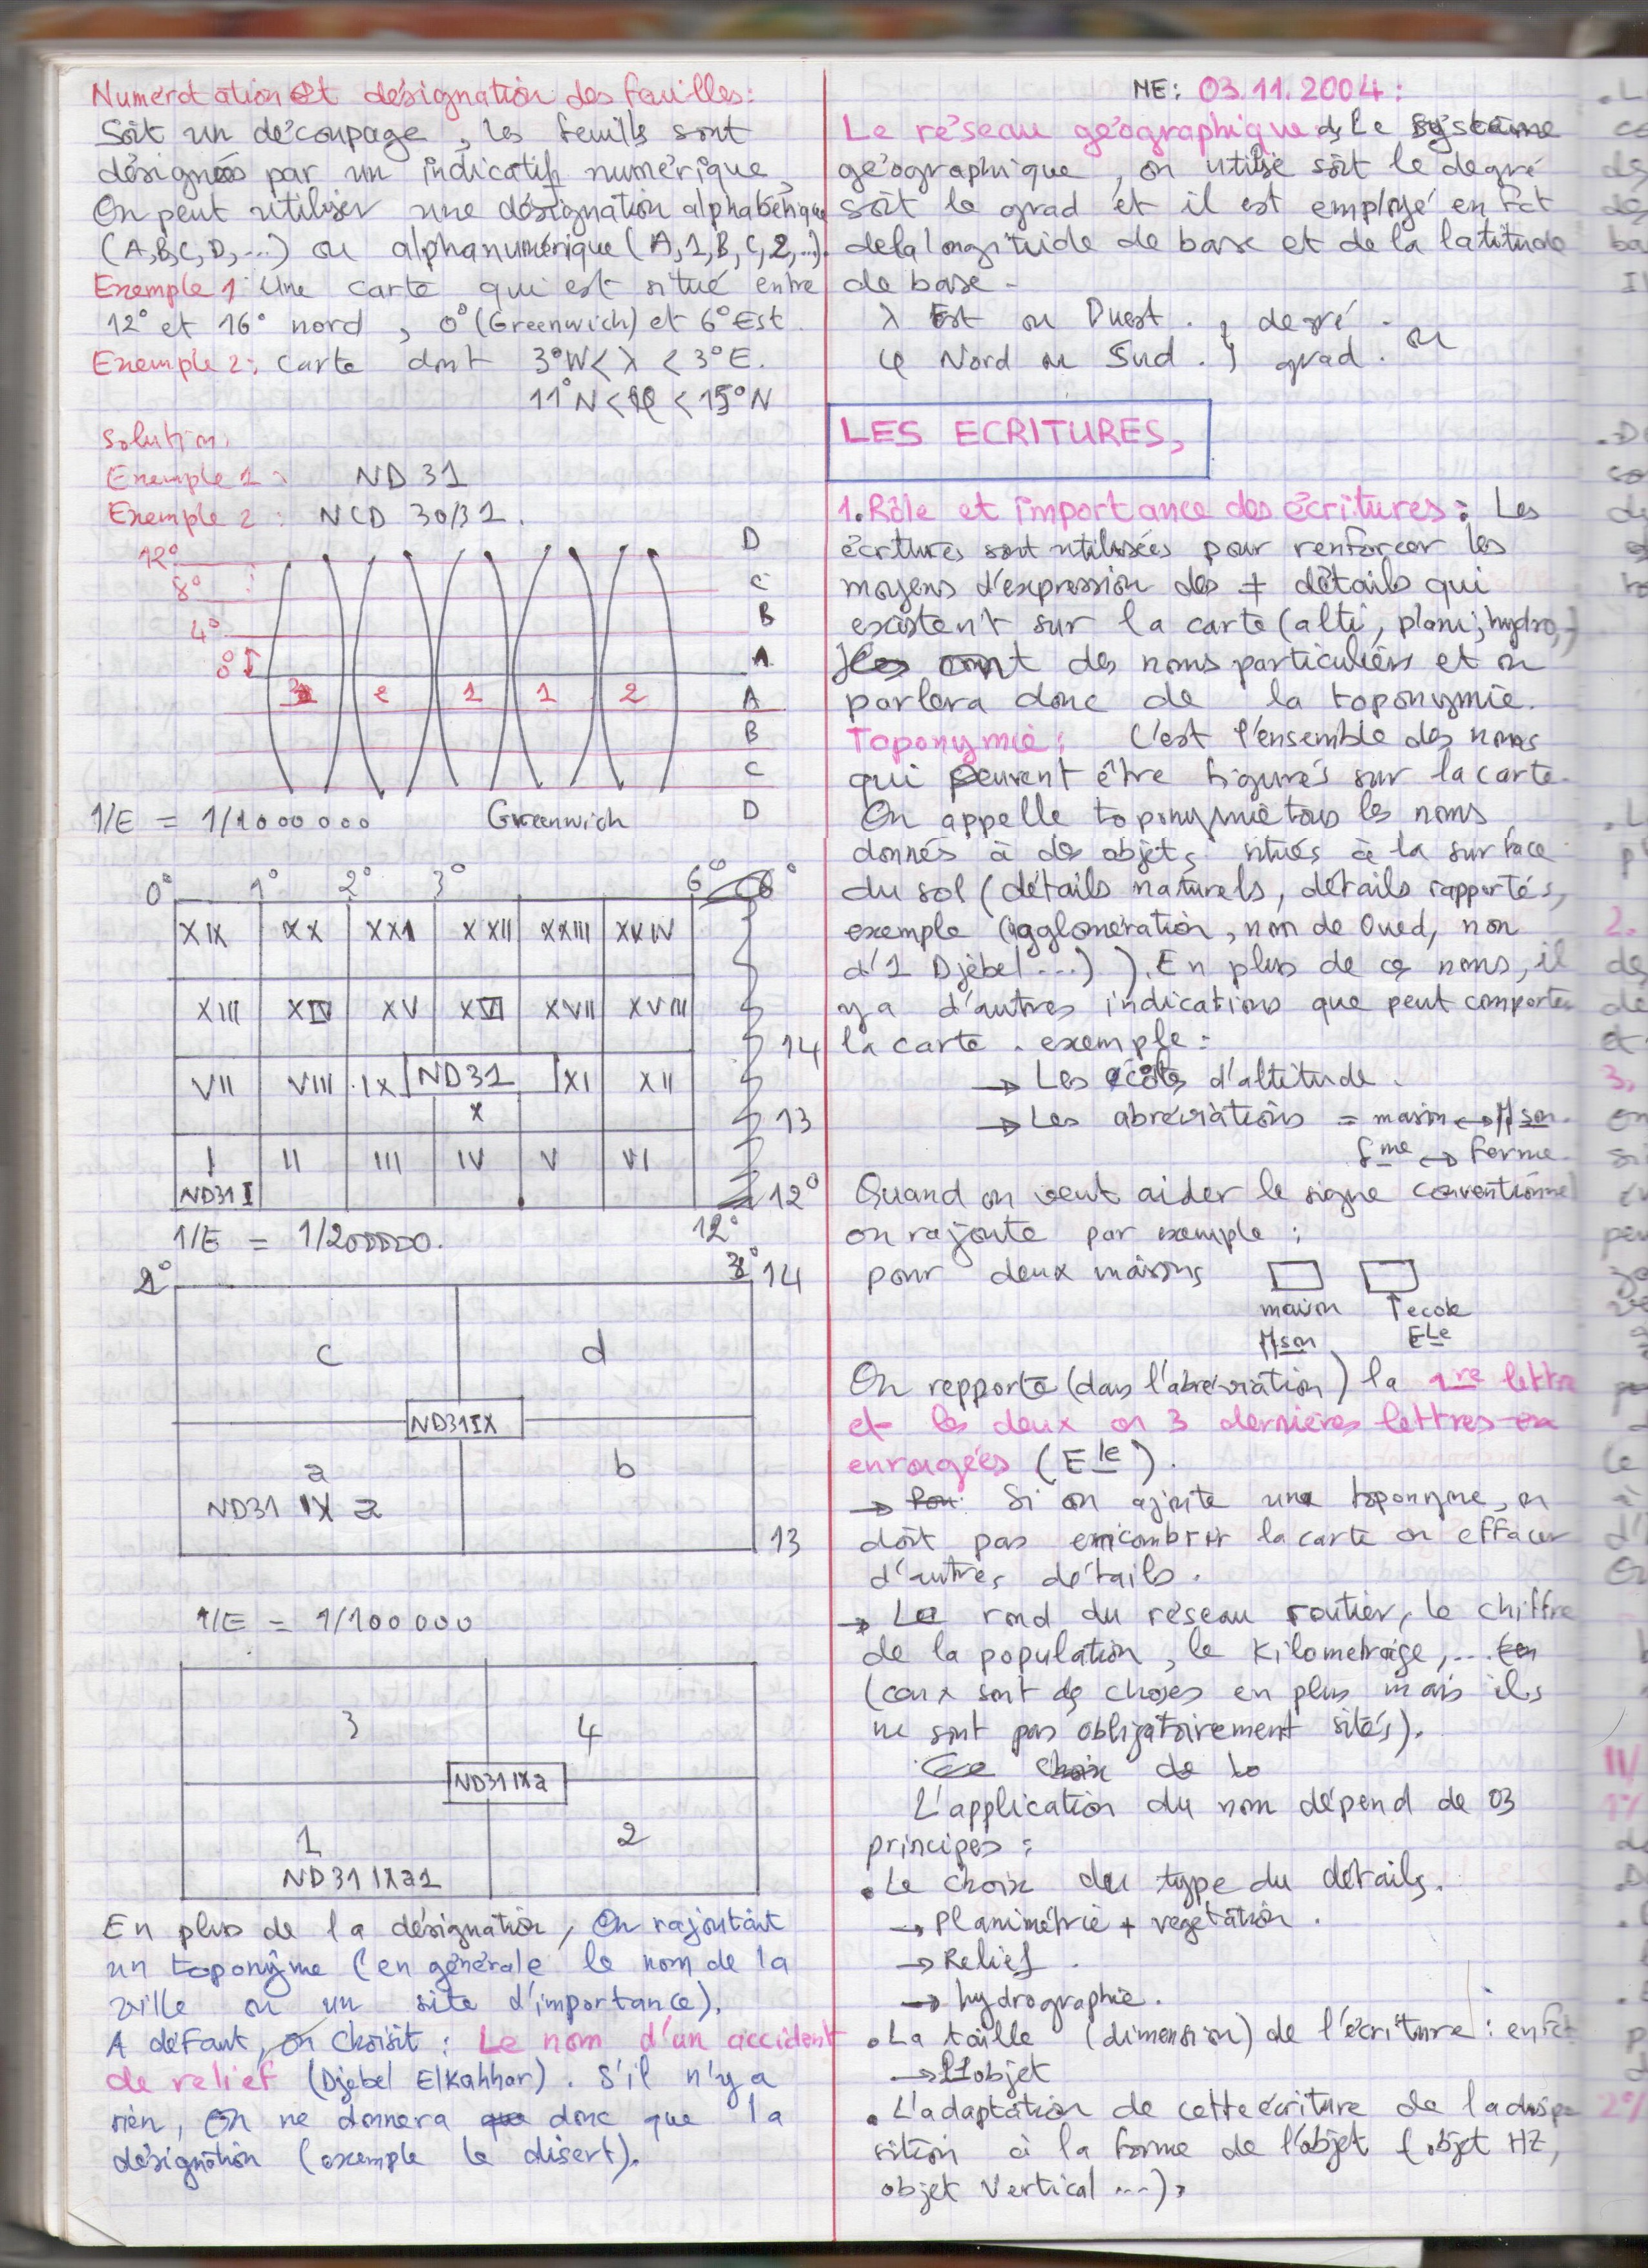 Numérotation et désignation des feuilles :
Soit un découpage, les feuills sont
désignées par un indicatif numérique
On peut utiliser une désignation alphabétique
(A,B,C,D,...) ou alphanumérique (A,1,B,C,2,...).
Exemple 1 Une carte qui est situé entre
12° et 16° nord, 0° (Greenwich) et 6° Est
Exemple 2: carte dont 3°W < λ < 3°E.
11°N < φ < 15°N
Solution.
Exemple 1 : ND 31
Exemple 2 : NCD 30/31.
12° D
8° C
4° B
0° A
3 2 1 1 2 A
B
C
1/E = 1/1000000 Greenwich D
0° 1° 2° 3° 6°
XIX XX XXI XXII XXIII XXIV
XIII XIV XV XVI XVII XVIII
14
VII VIII IX ND31 XI XII
X 13
I II III IV V VI
ND31 I 12°
1/E = 1/200000. 12°
2° 3° 14
c d
ND31IX
a b
ND31 IX a
13
1/E = 1/100000
3 4
ND31 IXa
1 2
ND31 IXa1
En plus de la désignation, On rajoutait
un toponyme (en générale le nom de la
ville ou un site d'importance).
A défaut, on choisit : Le nom d'un accident
de relief (Djebel ElKahhar). S'il n'y a
rien, On ne donnera que donc que la
désignation (exemple le disert).
ME: 03.11.2004 :
Le réseau géographique ds Le système
géographique, on utilise soit le degré
soit le grad et il est employé en fct
de la longitude de base et de la latitude
de base -
λ Est ou Ouest. , degré . ou
φ Nord ou Sud . } grad .
LES ECRITURES,
1. Rôle et importance des écritures : Les
écritures sont utilisées pour renforcer les
moyens d'expression des ≠ détails qui
existent sur la carte (alti, plani, hydro,..)
des noms particuliers et on
parlera donc de la toponymie.
Toponymie : C'est l'ensemble des noms
qui peuvent être figurés sur la carte.
On appelle toponymie tous les noms
donnés à des objets situés à la surface
du sol (détails naturels, détails rapportés,
exemple (agglomération, nom de Oued, non
d'1 Djebel ...) ). En plus de ces noms, il
y a d'autres indications que peut comporter
la carte . exemple :
→ Les côtes d'altitude .
→ Les abréviations = maison ↔ Mson.
fme ↔ Ferme.
Quand on veut aider le signe conventionnel
on rajoute par exemple :
pour deux maisons
maison ↑ ecole
Mson Ele
On repporte (dans l'abréviation) la 1re lettre
et les deux ou 3 dernières lettres
enrongées (Ele).
→ Si on ajoute une toponyme, on
doit pas encombrer la carte ou effacer
d'autres détails.
→ Le rond du réseau routier, le chiffre
de la population, le Kilometrage, ...
(ceux sont des choses en plus mais ils
ne sont pas obligatoirement sités).
Ce choix de la
L'application du nom dépend de 03
principes :
• Le choix du type du détails.
→ Planimétrie + végétation .
→ Relief .
→ hydrographie.
• La taille (dimension) de l'écriture : en fct
→ L'objet
• L'adaptation de cette écriture de la dispo
sition à la forme de l'objet (objet HZ,
objet Vertical ...),